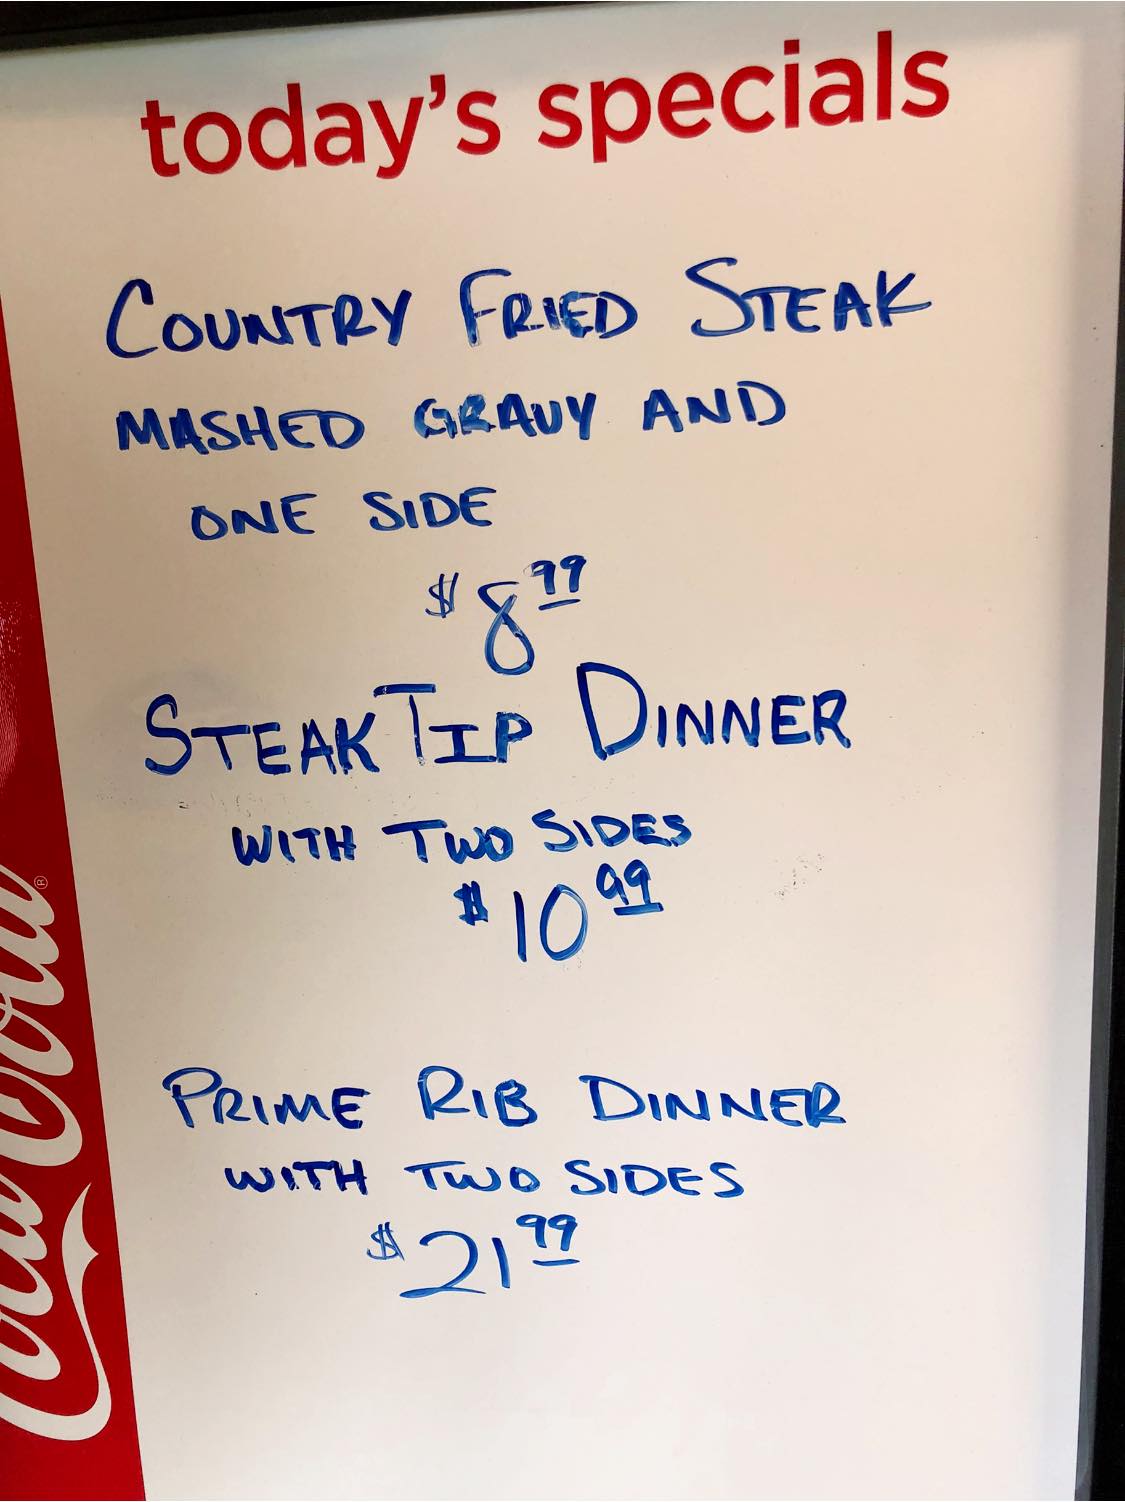 today's specials
COUNTRY FRIED STEAK
MASHED GRAVY AND
ONE SIDE
$8.99
STEAK TIP DINNER
WITH TWO SIDES
$10.99
PRIME RIB DINNER
WITH TWO SIDES
$21.99
Coca-Cola®